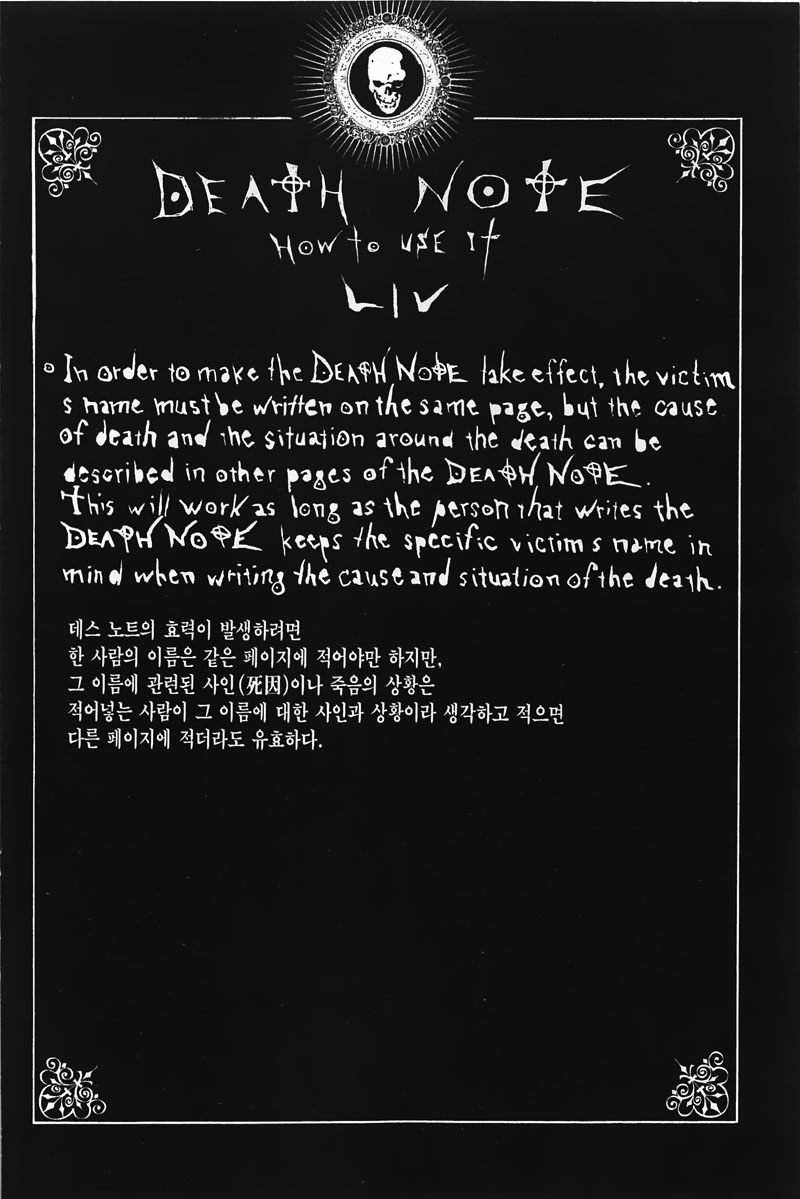 DEATH NOTE
HOW to USE It
LIV
In order to make the DEATH NOTE take effect, the victim
s name must be written on the same page, but the cause
of death and the situation around the death can be
described in other pages of the DEATH NOTE.
This will work as long as the person that writes the
DEATH NOTE keeps the specific victim s name in
mind when writing the cause and situation of the death.
데스 노트의 효력이 발생하려면
한 사람의 이름은 같은 페이지에 적어야만 하지만,
그 이름에 관련된 사인(死因)이나 죽음의 상황은
적어넣는 사람이 그 이름에 대한 사인과 상황이라 생각하고 적으면
다른 페이지에 적더라도 유효하다.